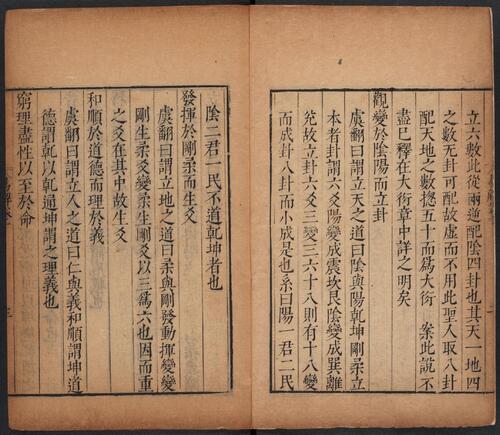 立六數此從兩道配陰四卦也其天一地四
之數无卦可配故虛而不用此聖人取八卦
配天地之數摠五十而爲大衍 案此說不
盡巳釋在大衍章中詳之明矣
觀變於陰陽而立卦
虞翻曰謂立天之道曰陰與陽乾坤剛柔立
本者卦謂六爻陽變成震坎艮陰變成巽離
兌故立卦六爻三變三六十八則有十八變
而成卦八卦而小成是也系曰陽一君二民
陰二君一民不道乾坤者也
發揮於剛柔而生爻
虞翻曰謂立地之道曰柔與剛發動揮變變
剛生柔爻變柔生剛爻以三爲六也因而重
之爻在其中故生爻
和順於道德而理於義
虞翻曰謂立人之道曰仁與義和順謂坤道
德謂乾以乾通坤謂之理義也
窮理盡性以至於命